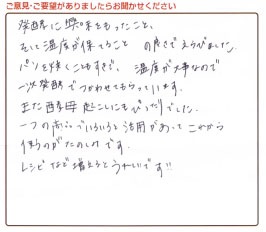 ご意見・ご要望がありましたらお聞かせください
発酵に興味をもったこと、
そして温度が保てること の良さでえらびました。
パンを焼くこともすきで、 温度が大事なので
一次発酵でつかわせてもらっています。
また酵母起こしにもぴったりでした。
一つの商品でいろいろと活用があってこれから
使うのがたのしみです。
レシピなど増えるとうれしいです!!